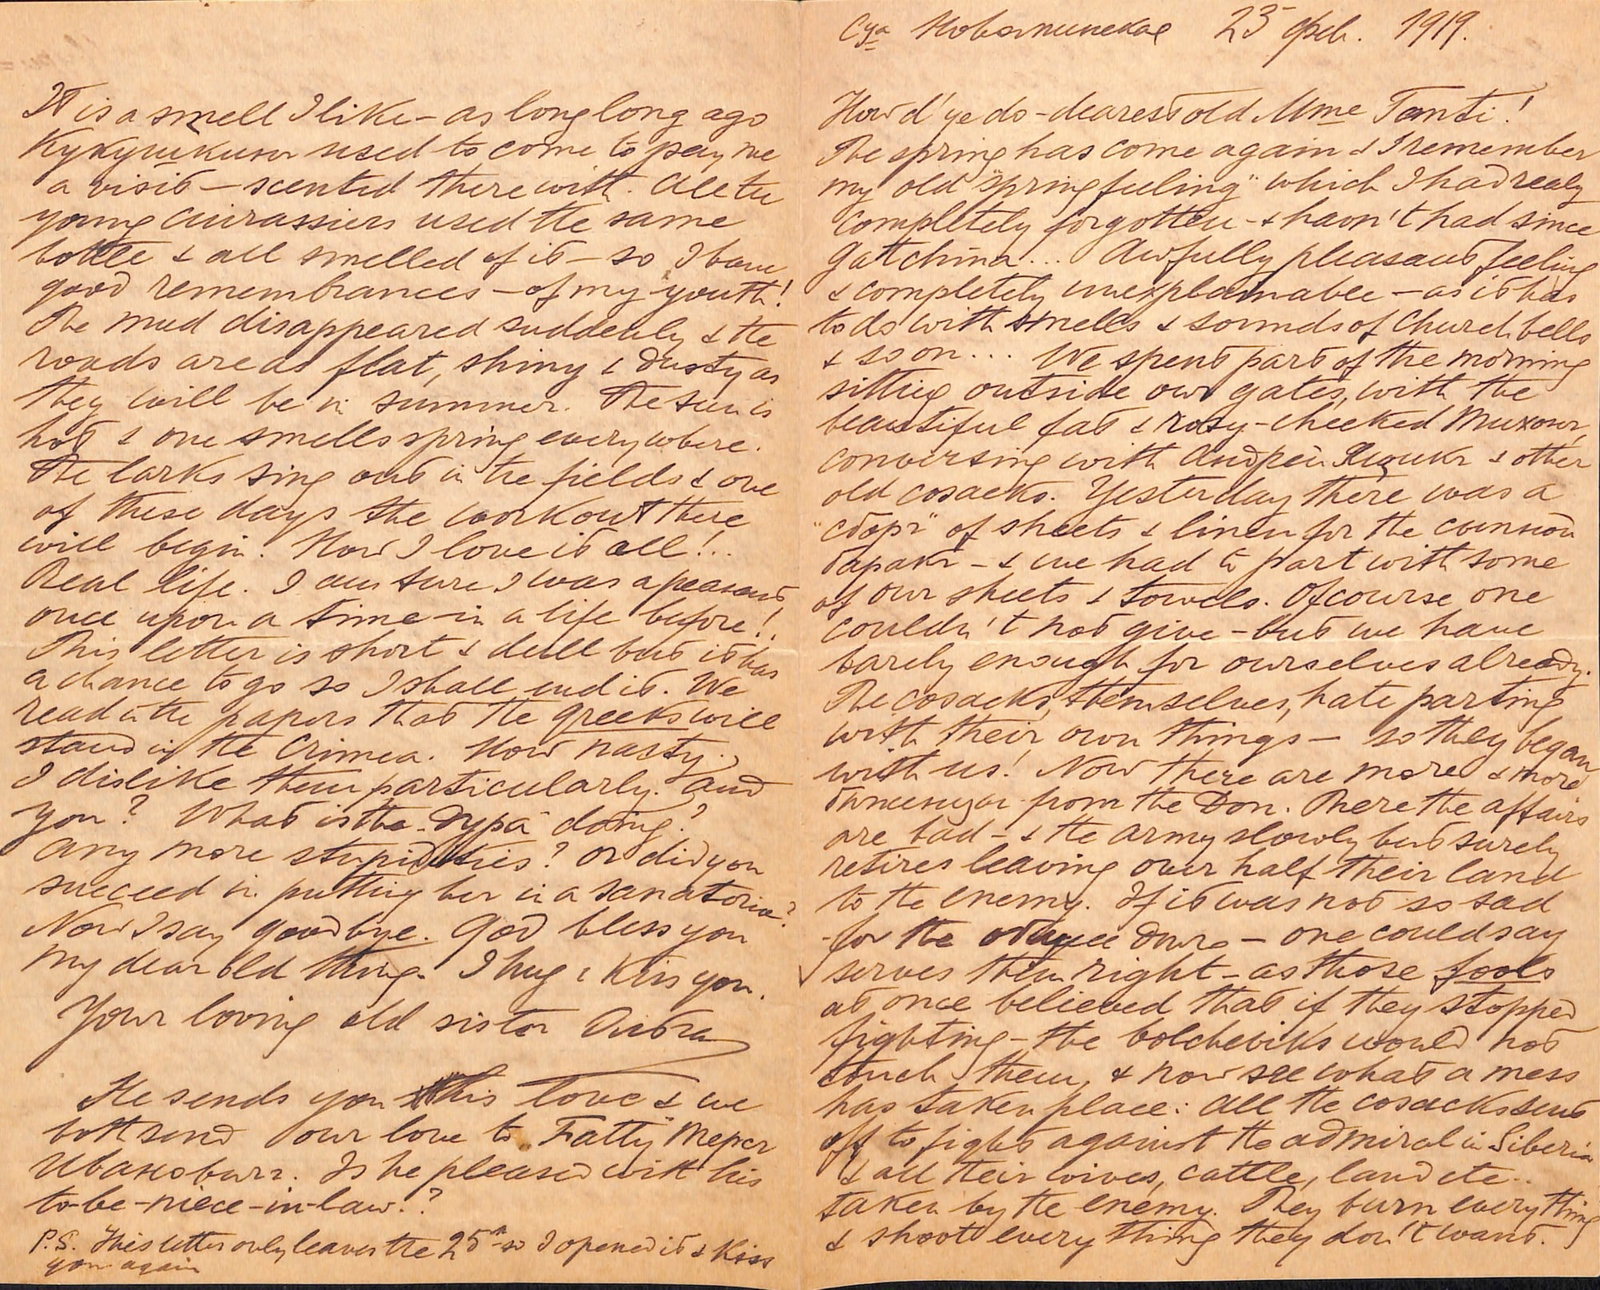 Новоминская 23 фев. 1919.
How d'ye do - dearest old Mme Tonti!
The spring has come again & I remember
my old "spring feeling" which I had realy
completely forgotten - & havn't had since
Gatchina... Awfully pleasant feeling
& completely unexplainable - as it has
to do with smells & sounds of Church bells
& so on... We spent part of the morning
sitting outside our gates, with the
beautiful fat & rosy-cheeked Тихон,
conversing with Андрей & other
old cosacks. Yesterday there was a
"сборъ" of sheets & linen for the common
баракъ - & we had to part with some
of our sheets & towels. Ofcourse one
couldn't not give - but we have
barely enough for ourselves already.
The cosacks, themselves, hate parting
with their own things - so they began
with us! Now there are more & more
from the Don. There the affairs
are bad - & the army slowly but surely
retires leaving over half their land
to the enemy. If it was not so sad
for the общее дело - one could say
serves them right - as those fools
at once believed that if they stopped
fighting - the bolcheviks would not
touch them, & now see what a mess
has taken place: All the cosacks sent
off to fight against the admiral in Siberia
& all their wives, cattle, land etc..
taken by the enemy. They burn everything
& shoot everything they don't want.
It is a smell I like - as long long ago
used to come to pay me
a visit - scented therewith. All the
young cuirassiers used the same
bottle & all smelled of it - so I have
good remembrances - of my youth!
The mud disappeared suddenly & the
roads are as flat, shiny & dusty as
they will be in summer. The sun is
hot & one smells spring everywhere.
The larks sing out in the fields & one
of these days the work out there
will begin. How I love it all!..
Real life. I am sure I was a peasant
once upon a time - in a life before!.
This letter is short & dull but it has
a chance to go so I shall end it. We
read in the papers that the greeks will
stand in the Crimea. How nasty.
I dislike them particularly. And
you? What is the "дура" doing?
Any more stupidities? Or did you
succeed in putting her in a sanatoria?
Now I say goodbye. God bless you
my dear old thing. I hug & kiss you.
Your loving old sister
He sends you his love & we
both send our love to Fatty
Ивановичъ. Is he pleased with his
to-be-niece-in-law?
P.S. This letter only leaves the 25th so I opened it & kiss
you again